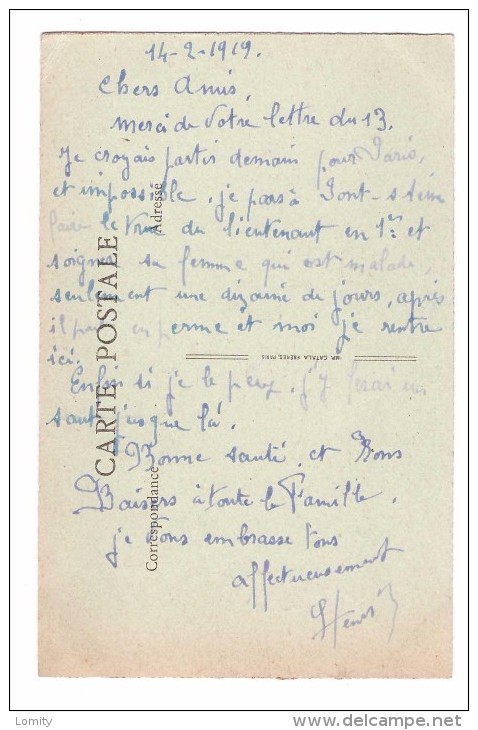 14-2-1919.
Chers Amis,
Merci de votre lettre du 13.
Je croyais partir demain pour Paris,
et impossible, je pars à Pont-s
faire le truc du lieutenant en 1er et
soigner sa femme qui est malade,
seulement une dizaine de jours, après
il part en perme et moi je rentre
ici.
Enfin si je le peux, j'y ferai un
saut jusque là.
Bonne santé et Bons
Baisers à toute la Famille.
je vous embrasse tous
affectueusement
Henri
CARTE POSTALE
Correspondance
Adresse
CATALA FRÈRES, PARIS
Lomity
http://www.delcampe.net